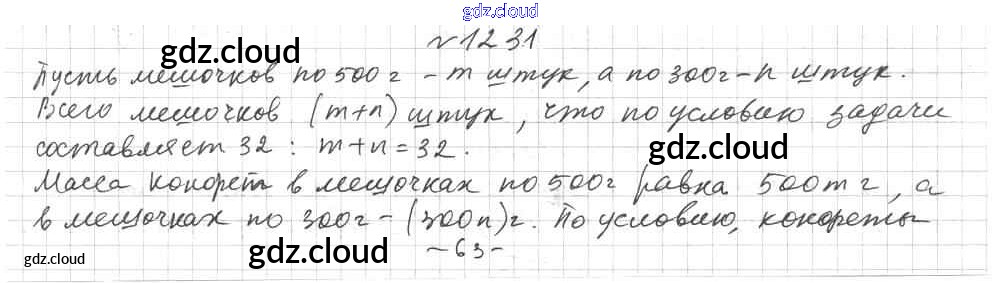 gdz.cloud
№1231
gdz.cloud
gdz.cloud
Пусть мешочков по 500 г - m штук, а по 300г - n штук.
Всего мешочков (m+n) штук, что по условию задачи
составляет 32 : m+n=32.
gdz.cloud
Масса конфет в мешочках по 500г равна 500m г, а
в мешочках по 300г - (300n)г. По условию, конфеты
gdz.cloud
-63-
gdz.cloud